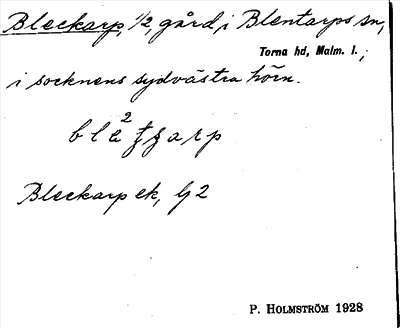 Bleckarp, 1/2, gård, i Blentarps sn,
Torna hd, Malm. l.;
i socknens sydvästra hörn.
Bleckarp ek, G2
P. HOLMSTRÖM 1928